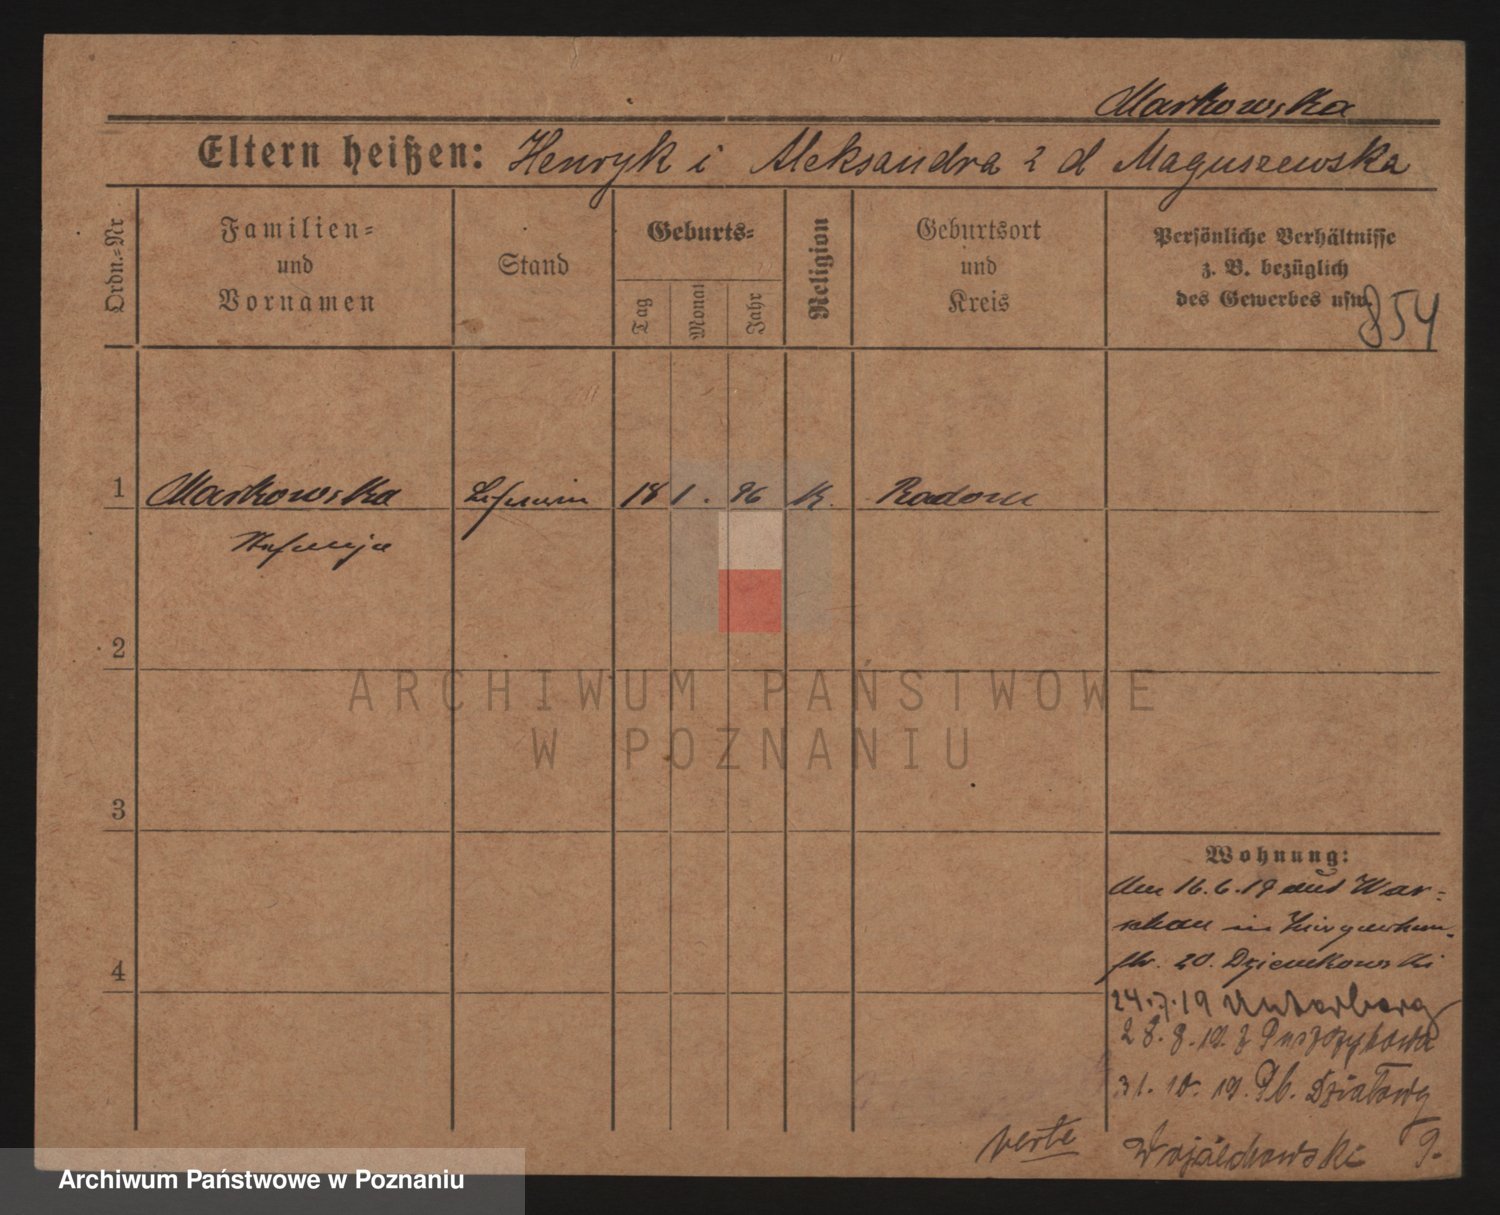 Markowska
Eltern heißen: Henryk i Aleksandra z d Maguszewska
Ordn.-Nr
Familien-
und
Vornamen
Stand
Geburts-
Tag
Monat
Jahr
Religion
Geburtsort
und
Kreis
Persönliche Verhältnisse
z. B. bezüglich
des Gewerbes usw.
854
1 Markowska 18 1. 96 K. Radom
Stefanja
2
ARCHIWUM PAŃSTWOWE
W POZNANIU
3
Wohnung:
Am 16.6.19 aus War-
schau in
20. Dziemkowski
4
24.7.19 Unterberg
28.8.19. z Puszczykowa
31.10.19. Pl. Działowy
Wojciechowski 9.
verte
Archiwum Państwowe w Poznaniu